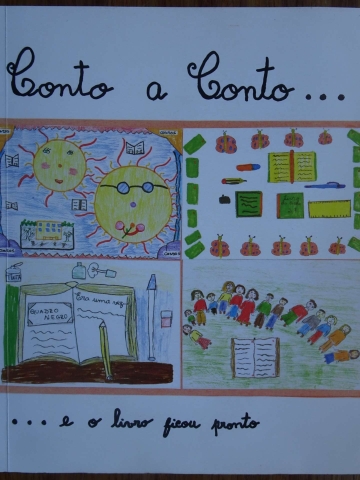 Conto a Conto...
Era uma vez
QUADRO
NEGRO
... e o livro ficou pronto